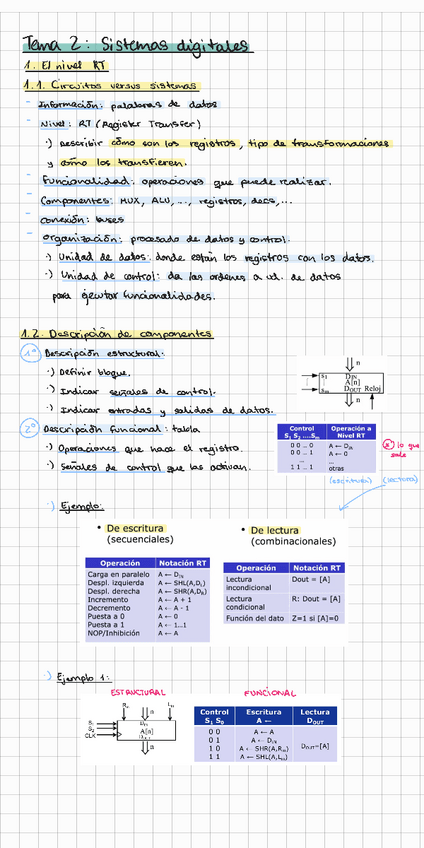 Tema 2: Sistemas digitales
1. El nivel RT
1.1. Circuitos versus sistemas
- Información: palabras de datos
- Nivel: RT (Register Transfer)
·) Describir cómo son los registros, tipo de transformaciones
y cómo los transfieren.
- Funcionalidad: operaciones que puede realizar.
- Componentes: MUX, ALU, ..., registros, decs, ...
- Conexión: buses
- Organización: procesado de datos y control.
·) Unidad de datos: donde están los registros con los datos.
·) Unidad de control: da las ordenes a ud. de datos
para ejecutar funcionalidades.
1.2. Descripción de componentes
1º Descripción estructural:
·) Definir bloque.
·) Indicar señales de control.
·) Indicar entradas y salidas de datos.
n
S1 DIN
A[n]
Sm DOUT Reloj
n
2º Descripción funcional: tabla
·) Operaciones que hace el registro.
·) Señales de control que las activan.
Control Operación a
S1 S2 ....Sm Nivel RT
0 0 ... 0 A ← DIN
0 0 ... 1 A ← 0
... ...
1 1 ... 1 otras
* lo que
sale
(escritura) (lectura)
·) Ejemplo:
• De escritura
(secuenciales)
• De lectura
(combinacionales)
Operación Notación RT
Carga en paralelo A ← DIN
Despl. izquierda A ← SHL(A,DL)
Despl. derecha A ← SHR(A,DR)
Incremento A ← A + 1
Decremento A ← A - 1
Puesta a 0 A ← 0
Puesta a 1 A ← 1...1
NOP/Inhibición A ← A
Operación Notación RT
Lectura
incondicional Dout = [A]
Lectura
condicional R: Dout = [A]
Función del dato Z=1 si [A]=0
·) Ejemplo 1:
ESTRUCTURAL FUNCIONAL
n
DIN
CLK A[n]
n
Control Escritura Lectura
S1 S0 A ← DOUT
0 0 A ← A
0 1 A ← DIN
1 0 A ← SHR(A,Rin)
1 1 A ← SHL(A,Lin)
DOUT=[A]